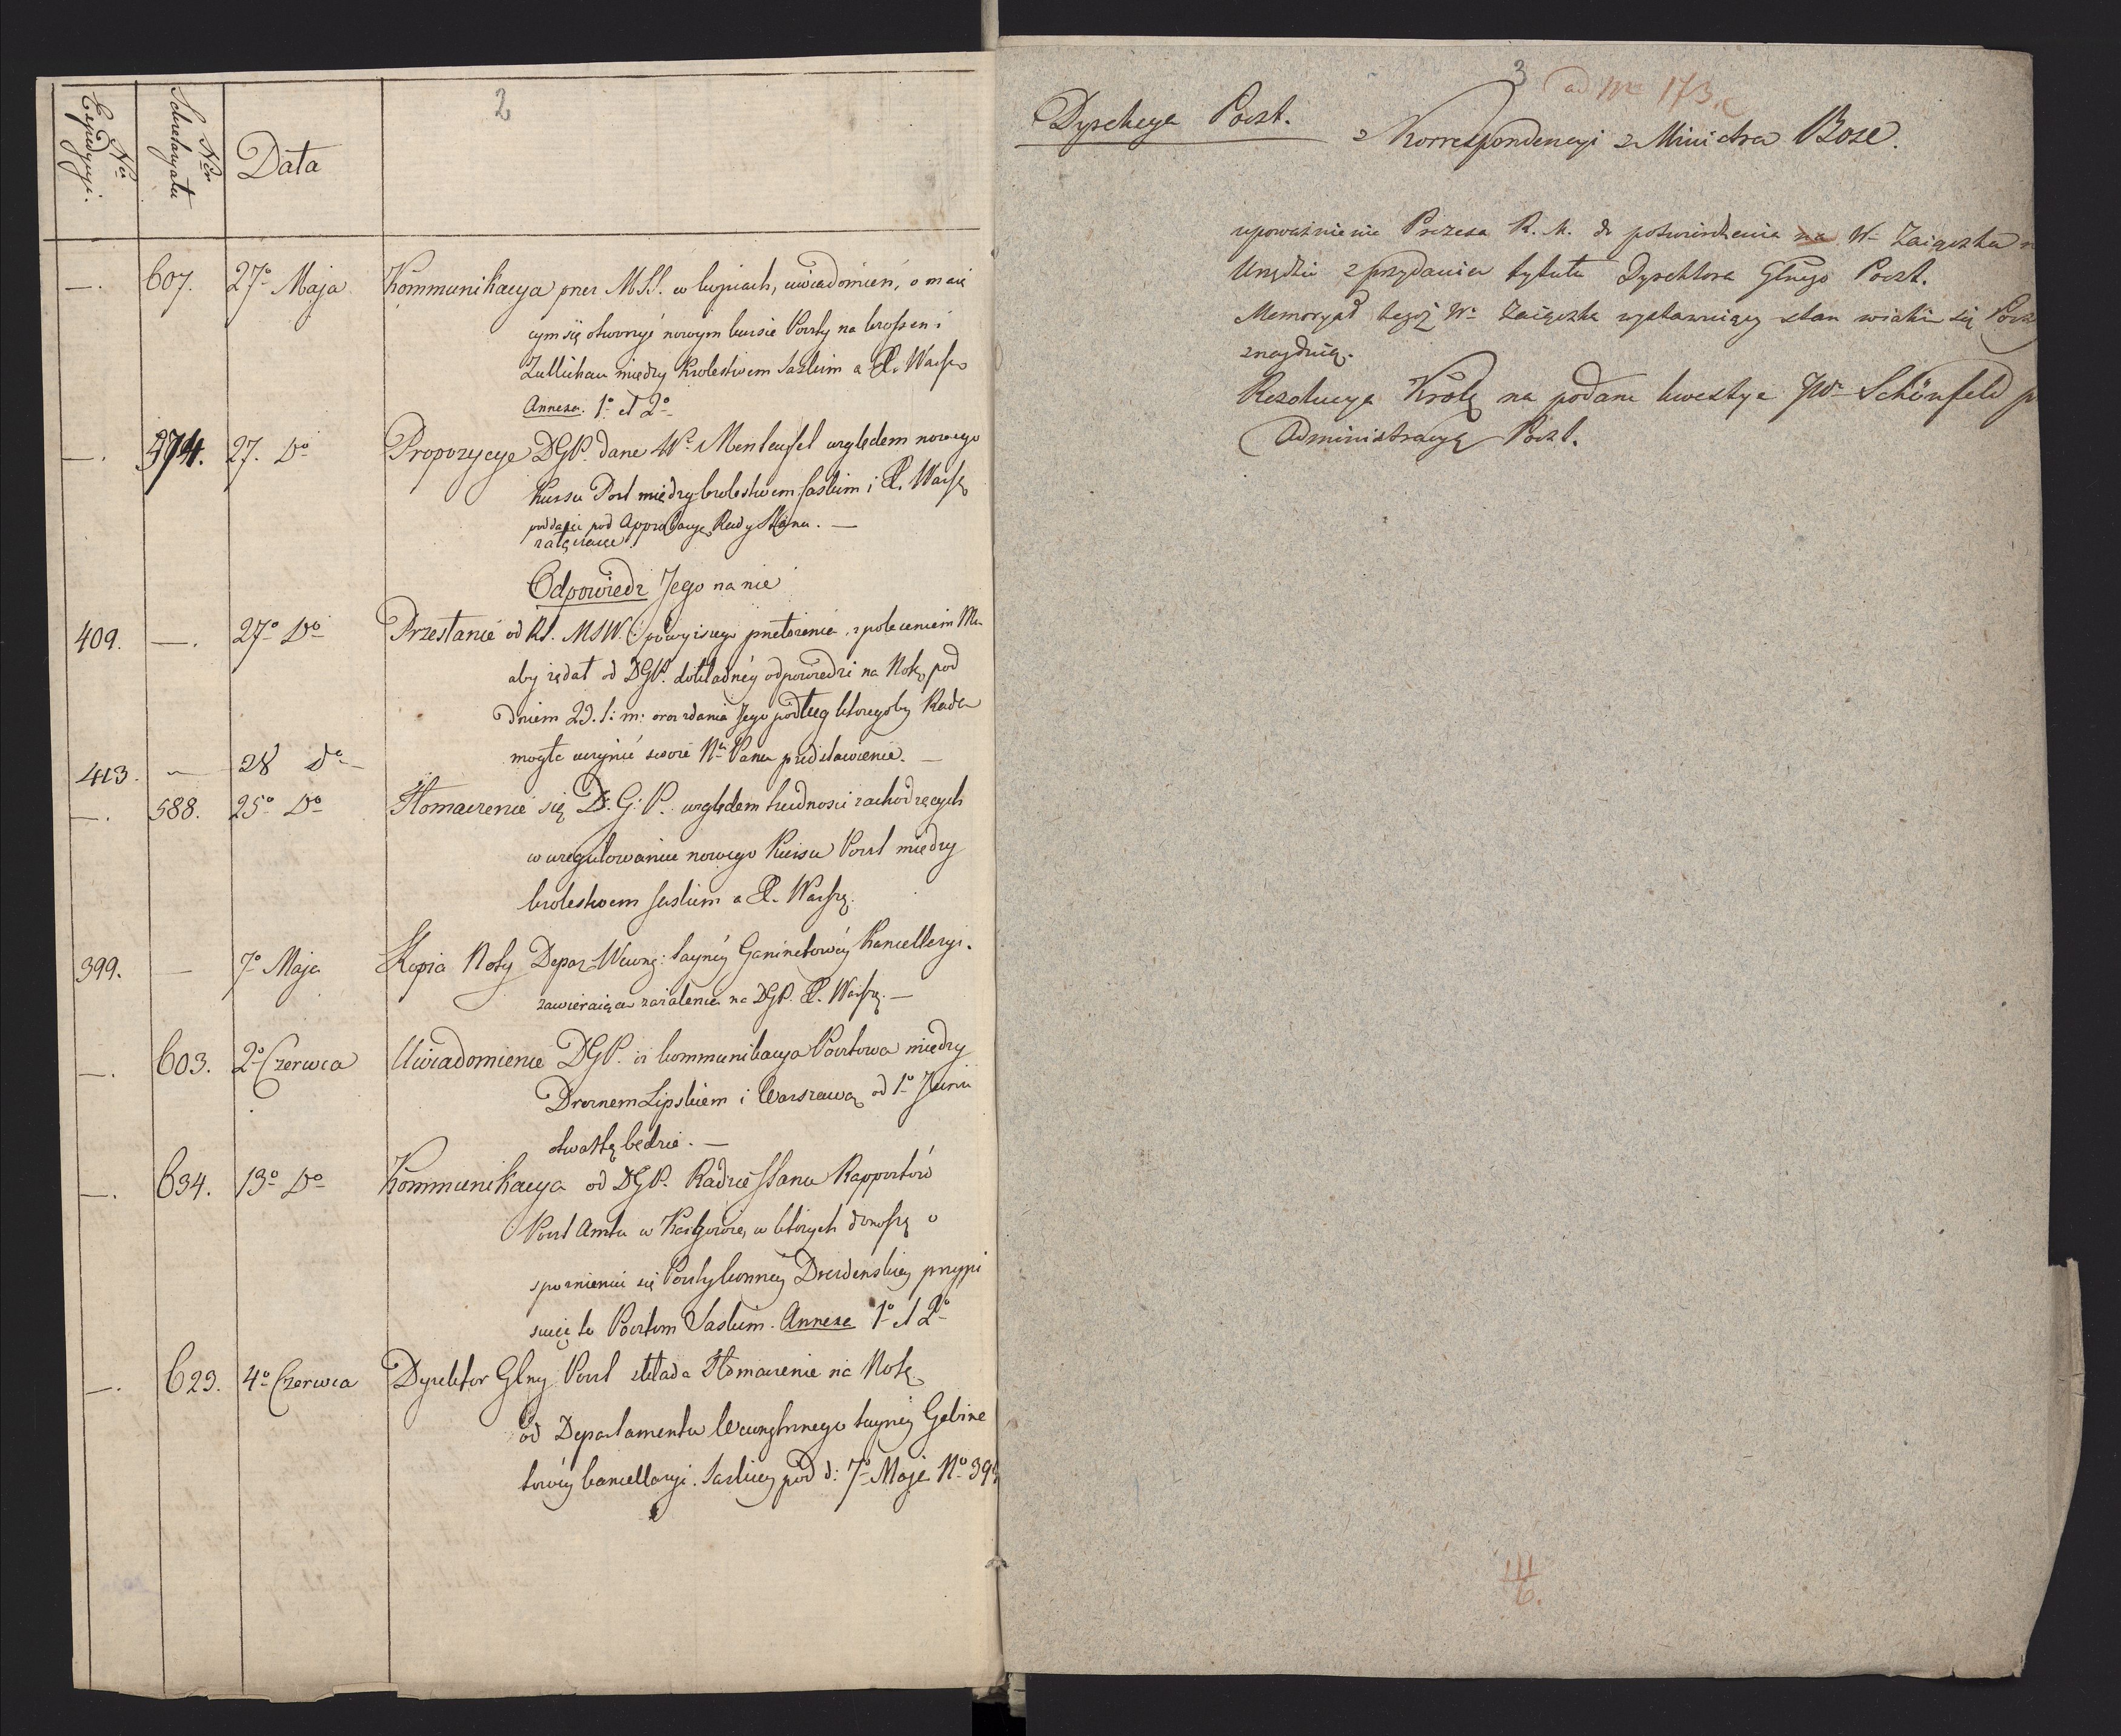 2
Nro Expedycyi.
Nror Sekretaryatu
Data
—. 607. 27o Maja Kommunikacya przez MSS. w kopiach, uwiadomień, o maią
cym się otworzyć nowym kursie Poczty na Krossen i
Zullichau między Krolestwem Saskim a X. Warsz.
Annexa. 1o et 2o
—. 574. 27. Do Propozycye DGP. dane Wu Menteufel względem nowego
Kursu Poczt między krolestwem saskim i X. Warsz
podaie pod Approbacyę Rady Stanu. —
załączaiąc
Odpowiedź Jego na nie
409. —. 27o Do Przesłanie od RS. MSW. powyższego przełożenia, z poleceniem Mu
aby żądał od DGP. dokładnéy odpowiedzi na Notę pod
dniem 23. b: m: oraz zdania Jego podług którego by Rada
mogła uczynić swoie Nu Panu przedstawienie. —
413. — 28 Do
—. 588. 25o Do Tłomaczenie się D. G. P. względem trudności zachodzących
w uregulowaniu nowego Kursu Poczt między
krolestwem saskim a X. Warszą.
399. — 7o Maja Kopia Noty Depar. Wewnę: taynéy Gabinetowéy Kancellaryi.
zawieraiąca zażalenia na DGP. X. Warszą. —
—. 603. 2o Czerwca Uwiadomienie DGP. iż kommunikacya Pocztowa między
Dreznem Lipskiem i Warszawą od 1o Junii
otwartą będzie. —
—. 634. 13o Do Kommunikacya od DGP. Radzie Stanu Rapportów
Poczt Amtu w Kargowie, w których donoszą o
spoznieniu się Poczty konnéy Drezdenskiéy przypi
suią to Pocztom Saskim. Annexa 1o et 2o
—. 623. 4o Czerwca Dyrektor Glny Poczt składa Tłomaczenie na Notę
od Departamentu Wewnętrznego tayney Gabine
towéy kancellaryi. Saskiey pod d: 7o Maja No 399
3
ad Nro 173.
Dyrekcya Poczt.
z Korrespondencyi z Ministra Bose.
upoważnienie Prezesa R. M. do potwierdzenia na W. Zaiączka
Urzędzie z przydaniem tytułu Dyrektora Glnego Poczt.
Memoryał tegoż Wo Zaiączka wystawuiący stan w iakim się Pocz
znayduią.
Rezolucya Króla na podane kwestye JWo Schönfeld
Administracyą Poczt.
III
6.